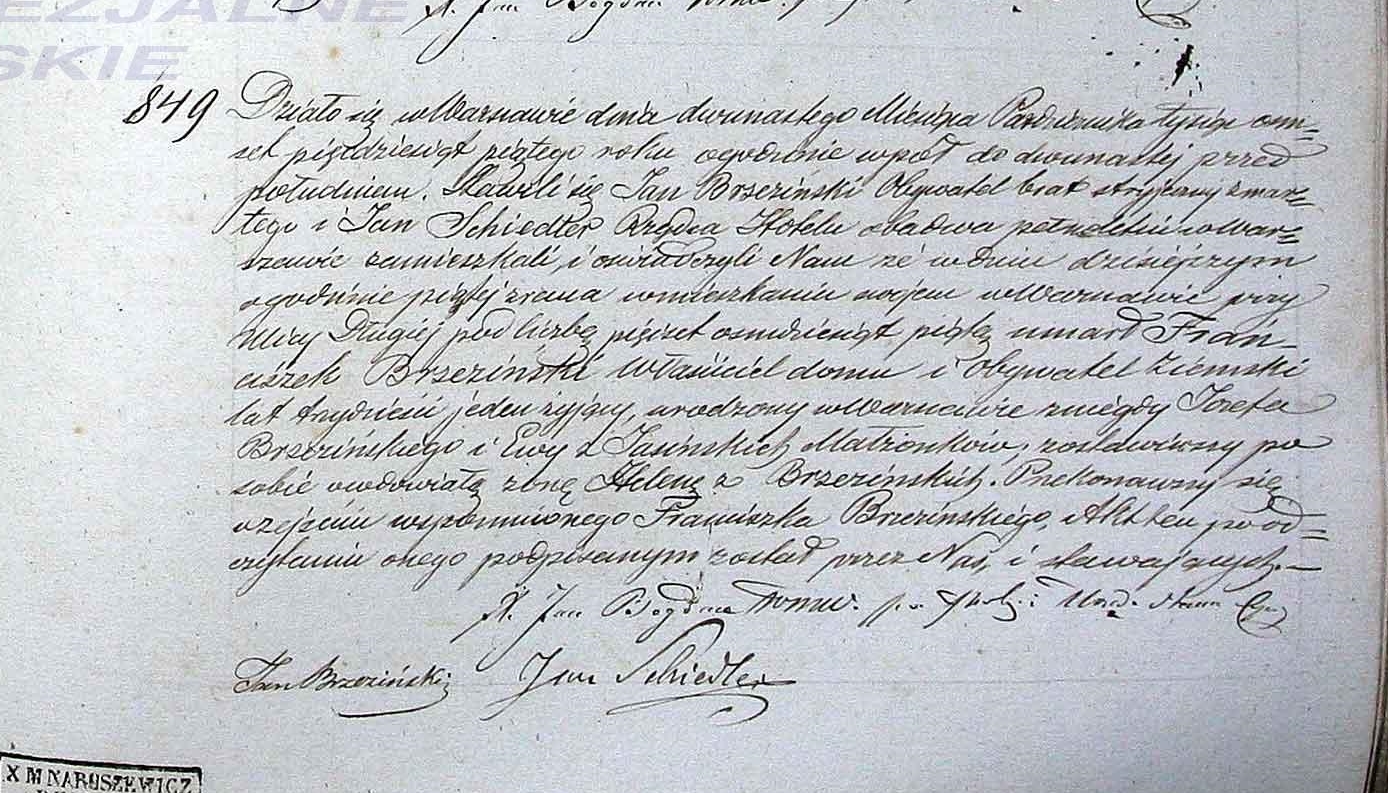 EZJALNE
SKIE
X. Jan Bogdan
849 Działo się w Warszawie dnia dwunastego Miesiąca Października tysiąc ośm=
set pięćdziesiąt piątego roku o godzinie wpół do dwunastej przed
południem. Stawili się Jan Brzeziński Obywatel brat stryjeczny zmar=
łego i Jan Schiedler Rządca Hotelu obadwa pełnoletni w War=
szawie zamieszkali, i oświadczyli Nam że w dniu dzisiejszym
o godzinie piątej zrana w mieszkaniu swojem w Warszawie przy
Ulicy Długiej pod liczbą pięćset ośmdziesiąt piątą umarł Fran_
ciszek Brzeziński Właściciel domu i Obywatel Ziemski
lat trzydzieści jeden żyjący, urodzony w Warszawie z niegdy Józefa
Brzezińskiego i Ewy z Jasińskich Małżonków, zostawiwszy po
sobie owdowiałą żonę Helenę z Brzezińskich. Przekonawszy się
o zejściu wspomnionego Franciszka Brzezińskiego, Akt ten po od=
czytaniu onego podpisanym został przez Nas, i stawających.—
X. Jan Bogdan
Jan Brzeziński Jan Schiedler
X M NARUSZEWICZ